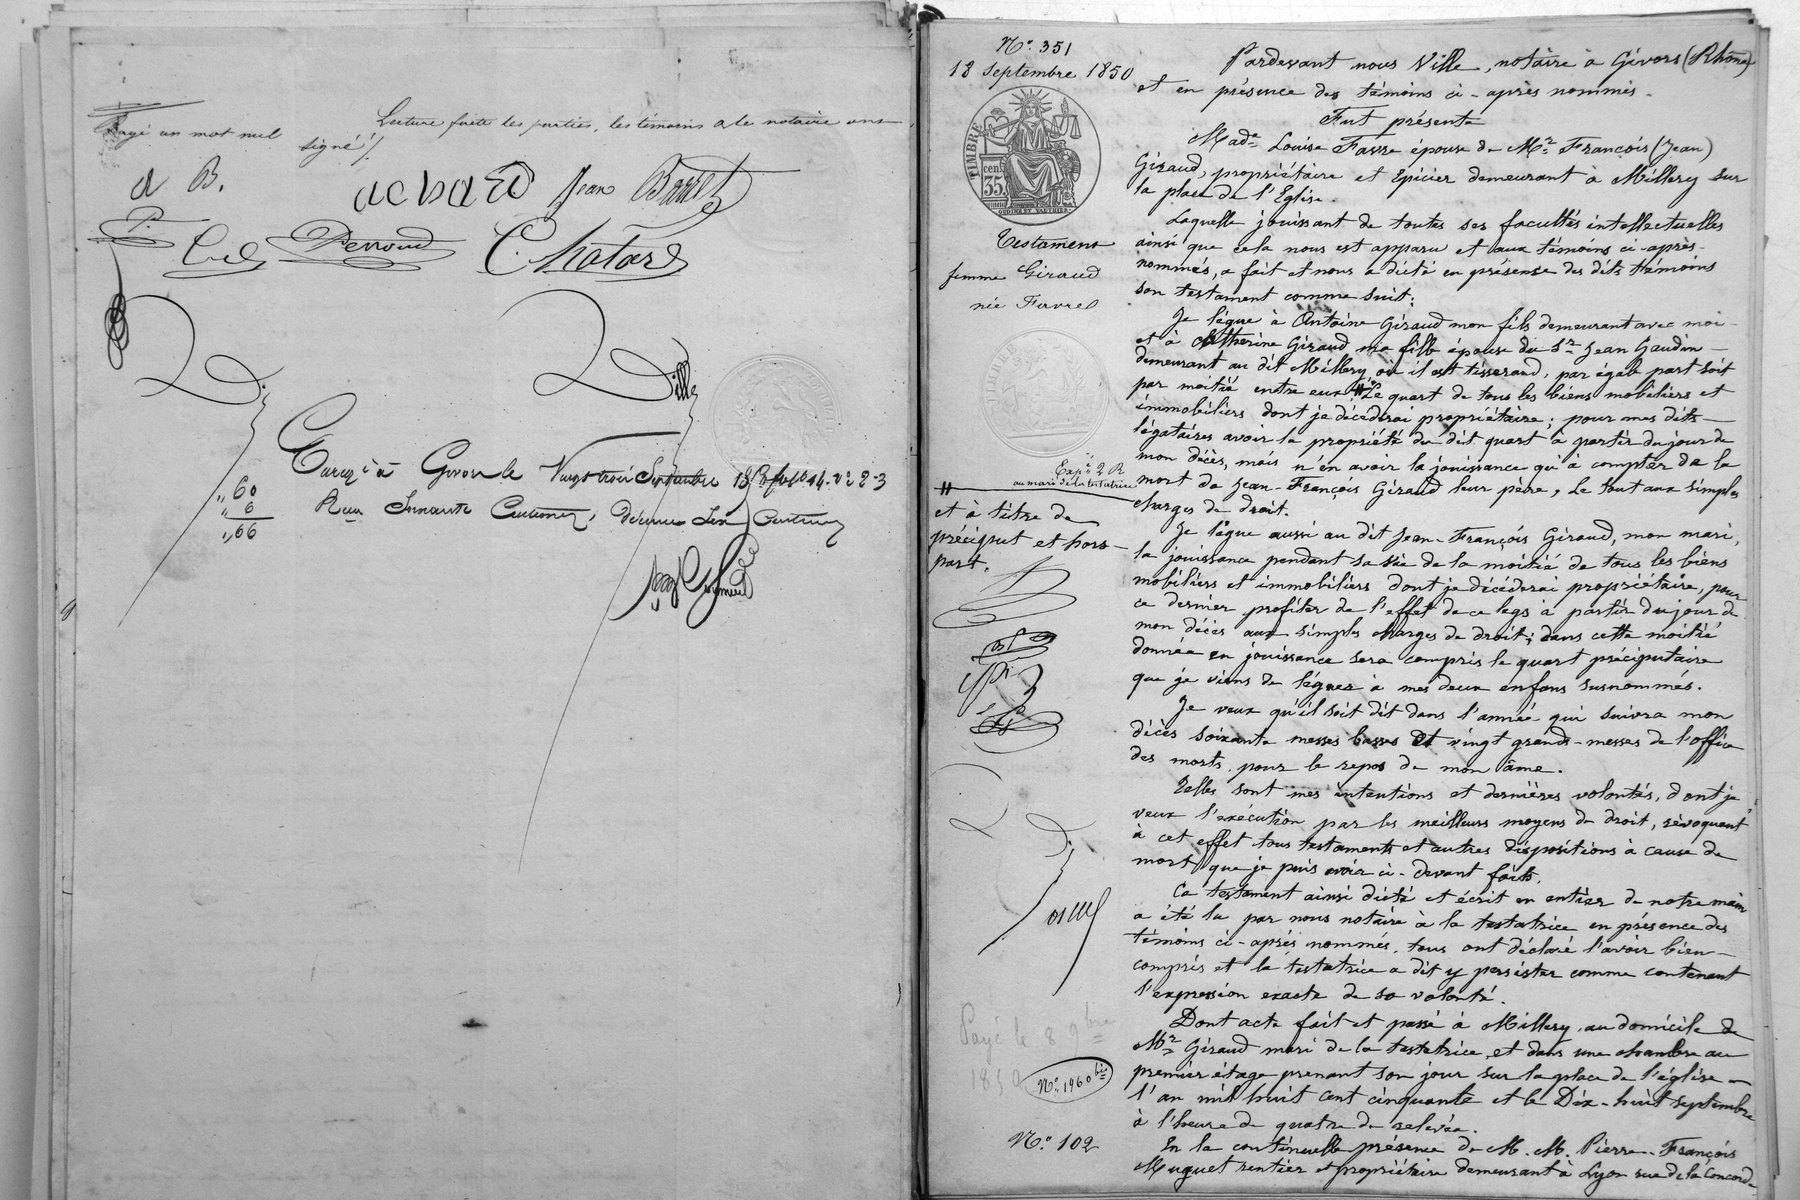 Rayé un mot nul
Lecture faite les parties, les témoins & le notaire ont
signé /.
B.
achard Jean Borret
P.
Perroud Chatard
Ville
à Givors le Vingt trois Septembre 18 fo 14. Vo 2-3
" 60
" 6
" 66
soixante centimes, décime six centimes
No. 351
18 Septembre 1850
TIMBRE
35 cen.
Testament
femme Giraud
née Favre
Expé 2 R
au mari de la testatrice
et à titre de
préciput et hors
part.
Payé le 8 9bre
1850
No. 1960 bis
No. 102
Pardevant nous Ville, notaire à Givors (Rhône)
et en présence des témoins ci-après nommés.
Fut présente
Made Louise Favre épouse de Mr François (Jean)
Giraud, propriétaire et Epicier demeurant à Millery sur
la place de l'Eglise.
Laquelle jouissant de toutes ses facultés intellectuelles
ainsi que cela nous est apparu et aux témoins ci-après-
nommés, a fait et nous a dicté en présense des dits témoins
son testament comme suit:
Je lègue à Antoine Giraud mon fils demeurant avec moi-
et à Catherine Giraud ma fille épouse du Sr Jean Gaudin
demeurant au dit Millery où il est tisserand, par égale part soit
par moitié entre eux # Le quart de tous les biens mobiliers et
immobiliers dont je décéderai propriétaire; pour mes dits
légataires avoir la propriété du dit quart à partir du jour de
mon décès, mais n'en avoir la jouissance qu'à compter de la
mort de Jean-François Giraud leur père, le tout aux simples
charges de droit.
Je lègue aussi au dit Jean-François Giraud, mon mari,
la jouissance pendant sa vie de la moitié de tous les biens
mobiliers et immobiliers dont je décéderai propriétaire, pour
ce dernier profiter de l'effet de ce legs à partir du jour de
mon décès aux simples charges de droit; dans cette moitié
donnée en jouissance sera compris le quart préciputaire
que je viens de léguer à mes deux enfans susnommés.
Je veux qu'il soit dit dans l'année qui suivra mon
décès soixante messes basses et vingt grand-messes de l'office
des morts, pour le repos de mon âme.
Telles sont mes intentions et dernières volontés, dont je
veux l'exécution par les meilleurs moyens de droit, révoquant
à cet effet tous testaments et autres dispositions à cause de
mort que je puis avoir ci-devant faits.
Ce testament ainsi dicté et écrit en entier de notre main
a été lu par nous notaire à la testatrice en présence des
témoins ci-après nommés, tous ont déclaré l'avoir bien
compris et la testatrice a dit y persister comme contenant
l'expression exacte de sa volonté.
Dont acte fait et passé à Millery, au domicile de
Mr Giraud mari de la testatrice, et dans une chambre au
premier étage prenant son jour sur la place de l'église
l'an mil huit cent cinquante et le Dix-huit septembre
à l'heure de quatre de relevée.
En la continuelle présence de M.M. Pierre-François
Muguet rentier et propriétaire demeurant à Lyon rue de la Concorde